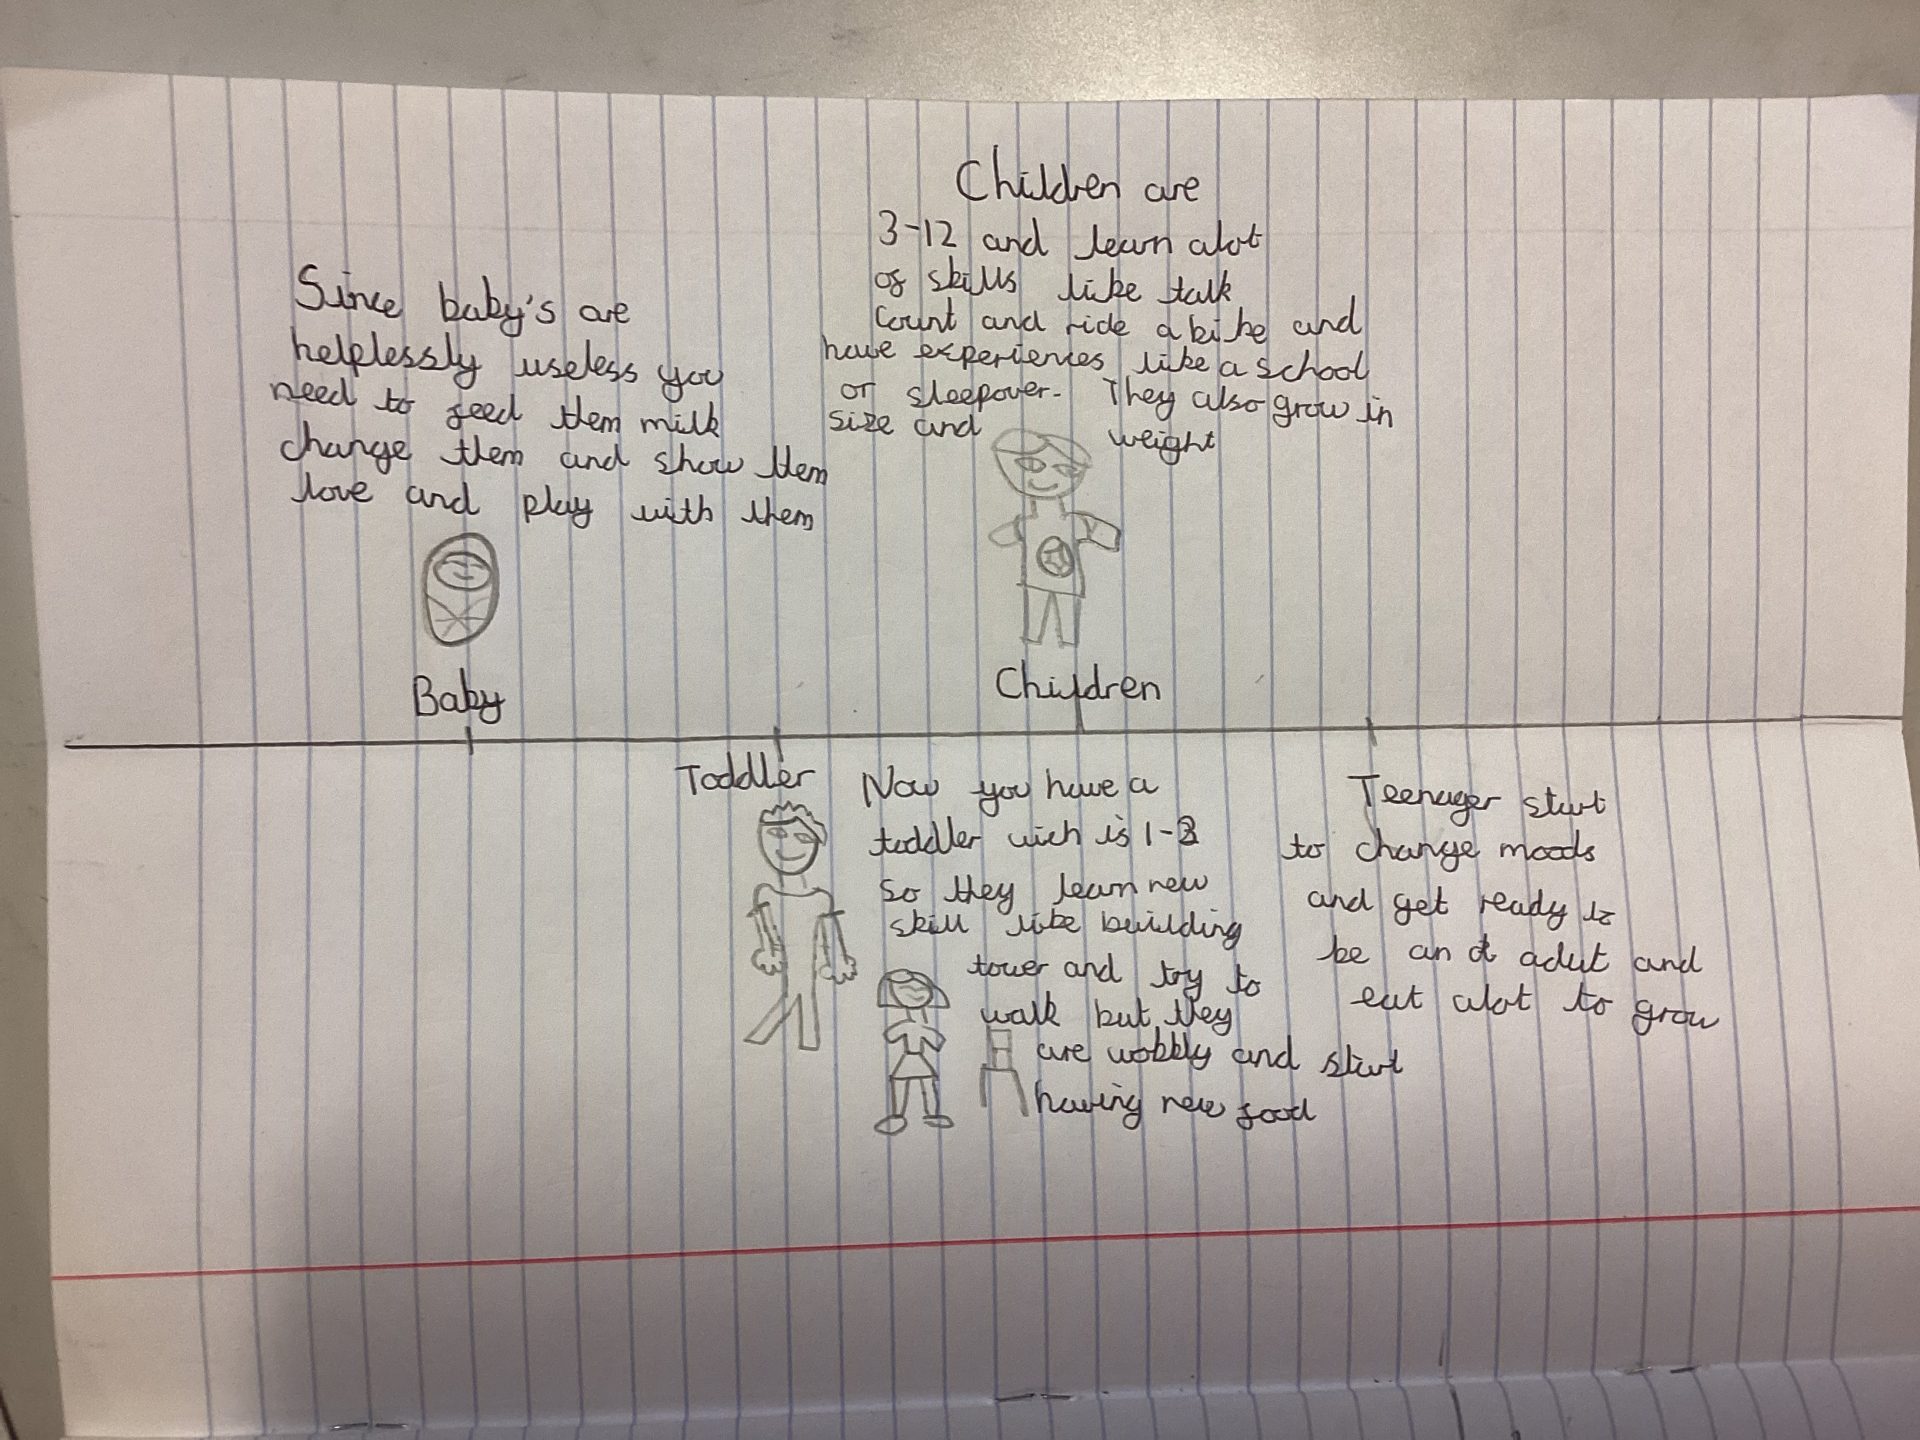 Since baby's are
helplessly useless you
need to feed them milk
change them and show them
love and play with them
Baby
Children are
3-12 and learn alot
of skills like talk
Count and ride a bike and
have experiences like a school
or sleepover. They also grow in
size and weight
Children
Toddler
Now you have a
toddler wich is 1-3
so they learn new
skill like building
tower and try to
walk but they
are wobbly and start
having new food
Teenager start
to change moods
and get ready to
be an adut and
eat alot to grow